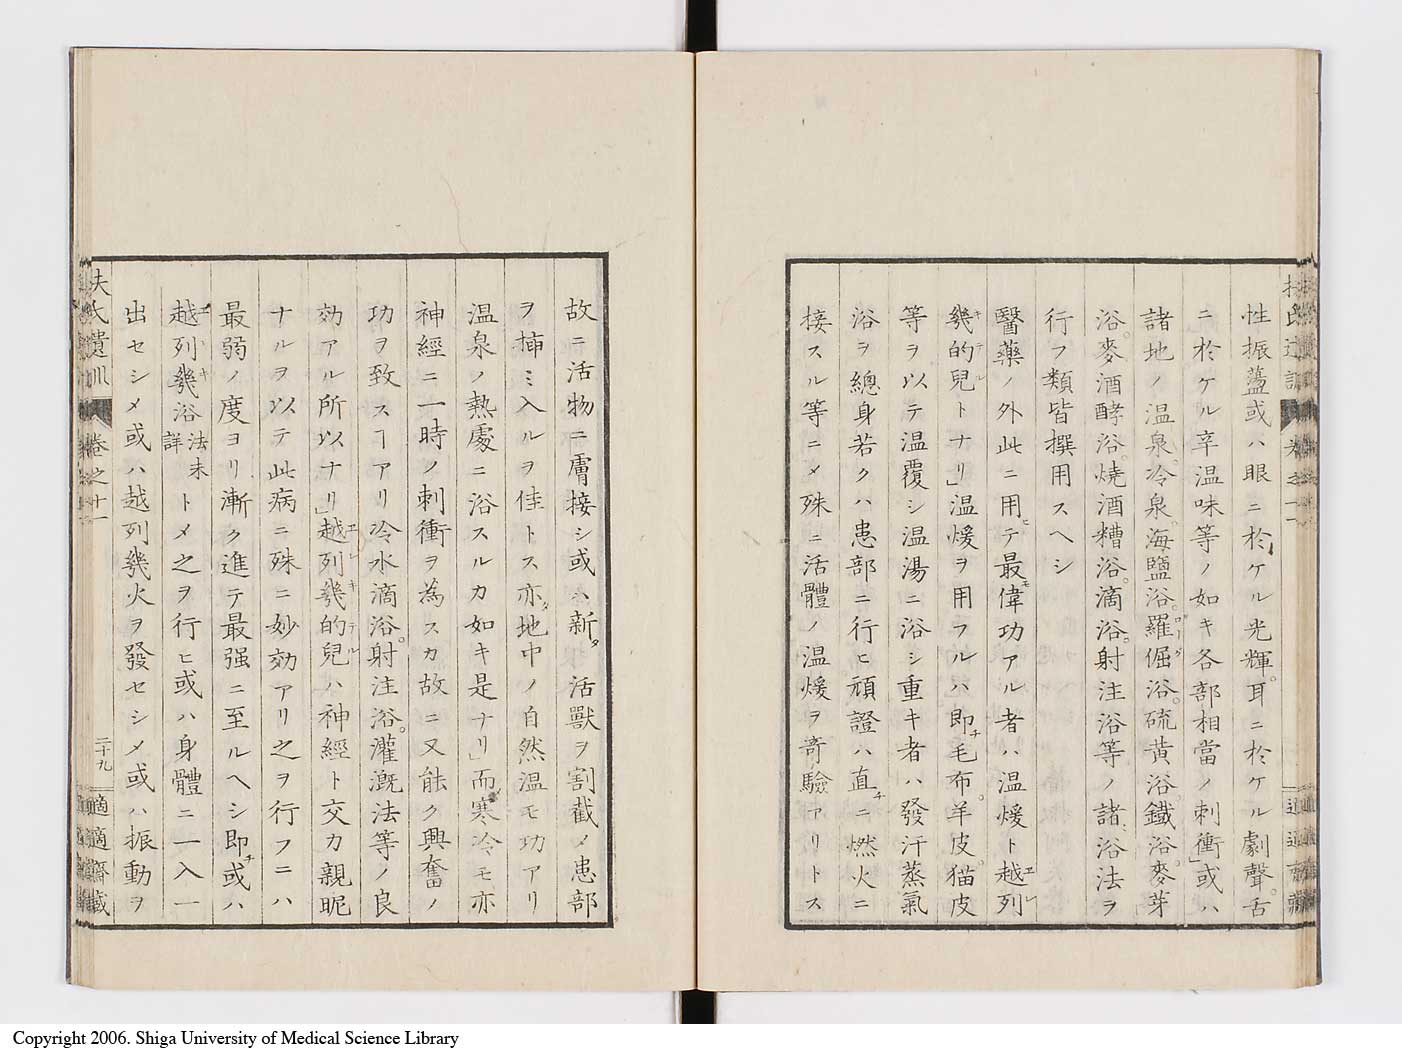 性振蕩或ハ眼ニ於ケル光輝。耳ニ於ケル劇聲。舌
ニ於ケル辛温味等ノ如キ各部相當ノ刺衝」或ハ
諸地ノ温泉。冷泉。海鹽浴。羅倔浴。硫黄浴。鐵浴。麥芽
浴。麥酒酵浴。燒酒糟浴。滴浴。射注浴等ノ諸浴法ヲ
行フ類皆撰用スヘシ
醫藥ノ外此ニ用テ最偉功アル者ハ温煖ト越列
幾的兒トナリ」温煖ヲ用フルハ即毛布。羊皮。猫皮
等ヲ以テ温覆シ温湯ニ浴シ重キ者ハ發汗蒸氣
浴ヲ總身若クハ患部ニ行ヒ頑證ハ直ニ燃火ニ
接スル等ニメ殊ニ活體ノ温煖ヲ竒驗アリトス
故ニ活物ニ膚接シ或ハ新タ活獸ヲ割截メ患部
ヲ挿ミ入ルヲ佳トス亦地中ノ自然温モ功アリ
温泉ノ熱處ニ浴スルカ如キ是ナリ」而寒冷モ亦
神經ニ一時ノ刺衝ヲ為スカ故ニ又能ク興奮ノ
功ヲ致スヿアリ冷水滴浴。射注浴。灌漑法等ノ良
効アル所以ナリ」越列幾的兒ハ神經ト交カ親昵
ナルヲ以テ此病ニ殊ニ妙効アリ之ヲ行フニハ
最弱ノ度ヨリ漸ク進テ最强ニ至ルヘシ即或ハ
越列幾浴法未詳トメ之ヲ行ヒ或ハ身體ニ一入一
出セシメ或ハ越列幾火ヲ發セシメ或ハ振動ヲ
扶氏遺訓 卷之十一 二十九 適適齋藏
Copyright 2006. Shiga University of Medical Science Library